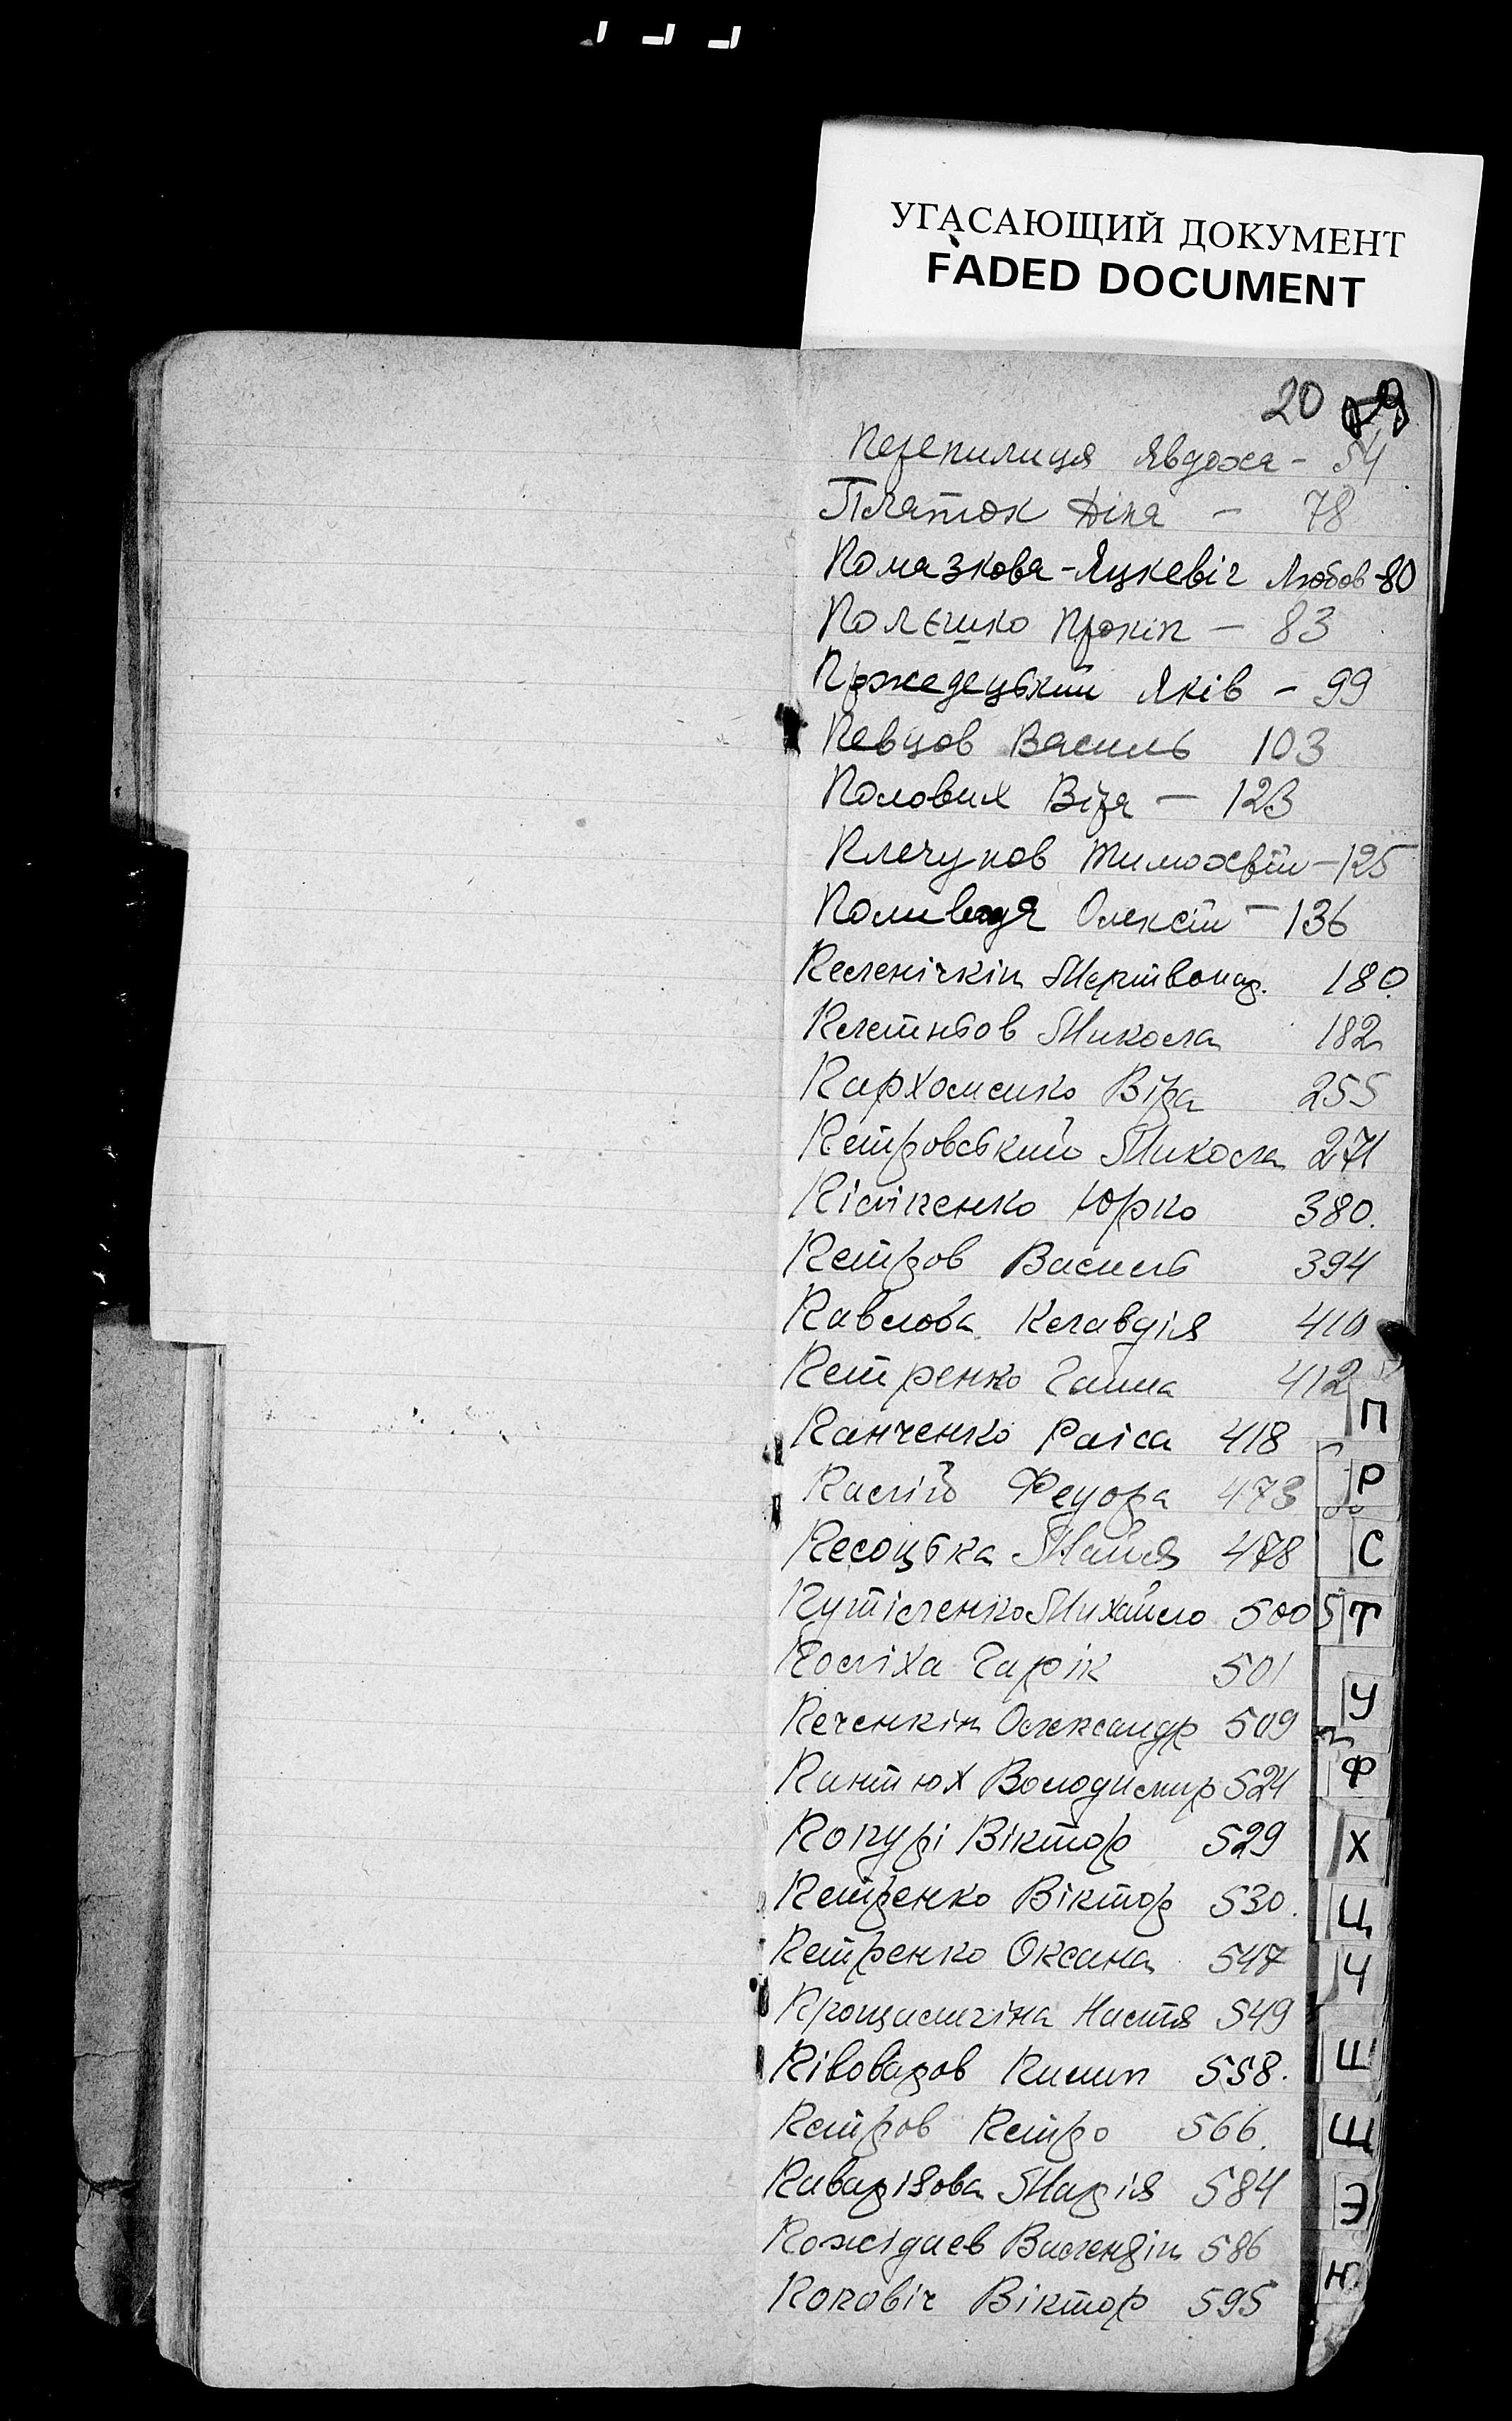 УГАСАЮЩИЙ ДОКУМЕНТ
FADED DOCUMENT
20
Перепилиця Явдоха - 54
Платок Діна - 78
Помазкова-Яцкевіч Любов - 80
Полєшко Прокіп - 83
Пржедецький Яків - 99
Певцов Василь 103
Полових Віра - 123
Плечунов Тимохвій - 125
Поливода Олексій - 136
Пеленічкін 180.
Плетньов Микола 182
Пархоменко Віра 255
Петровський Микола 271
Пілипенко Юрко 380.
Петров Василь 394
Павлова Клавдія 410
Петренко Ганна 412
Панченко Раїса 418
Палій Федора 473
Песоцька Майя 478
Путіленко Михайло 500
Поліха Гарік 501
Печенкін Олександр 509
Пантюх Володимир 524
Попурі Віктор 529
Петренко Віктор 530.
Петренко Оксана 547
Настя 549
Півоваров Пилип 558.
Петров Петро 566.
Марія 584
Пожідаєв 586
Попавіч Віктор 595
П
Р
С
Т
У
Ф
Х
Ц
Ч
Ш
Щ
Э